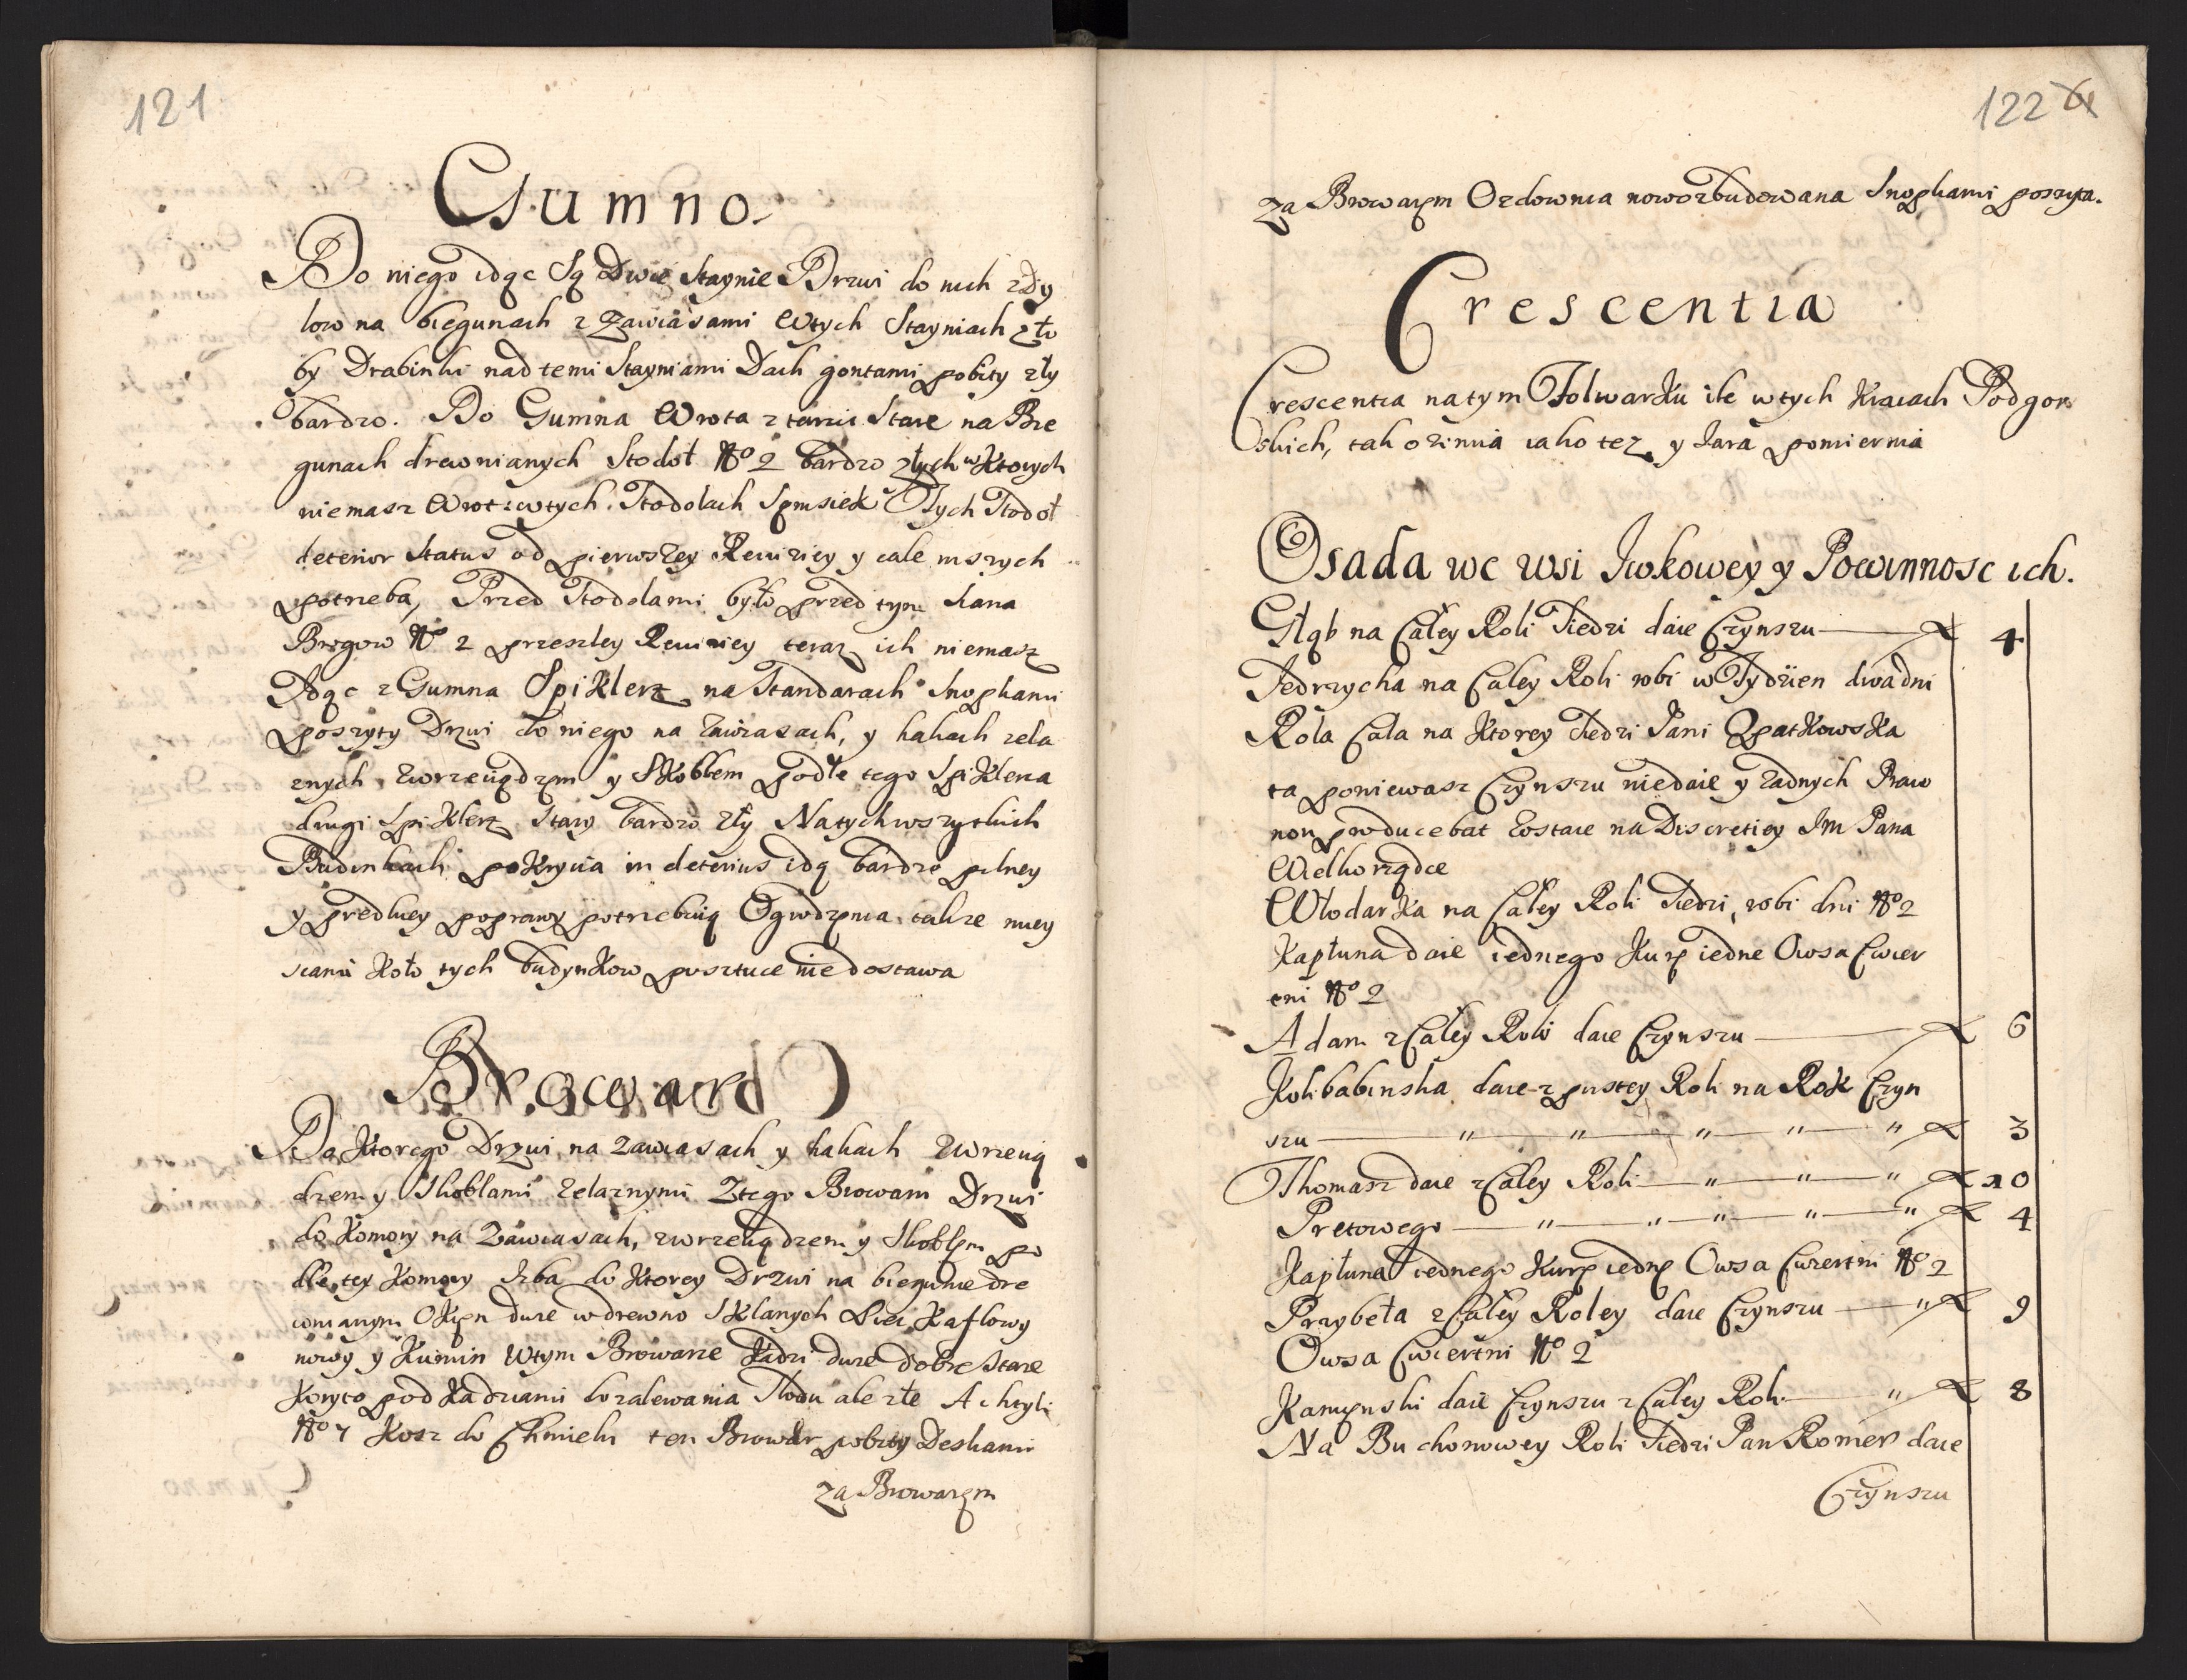 121
Gumno
Do niego idąc Są Dwie Staynie Drzwi do nich z Dy
low na biegunach z zawiasami W tych Stayniach żło
by Drabinki nad temi Stayniami Dach gontami pobity zły
bardzo. Do Gumna Wrota z tarcic Stare na Bie
gunach drewnianych Stodoł No 2 bardzo złych w Ktorych
niemasz Wrot: w tych Stodolach Sąmsiek Tych Stodoł
deterior Status od pierwszey Rewiziey y cale inszych
potrzeba, Przed Stodolami było przed tym Siana
Brogow No 2 przeszley Rewiziey teraz ich niemasz
Idąc z Gumna Spiklerz na Standarach Snopkami
poszyty Drzwi do niego na Zawiasach, y hakach zela
znych, Zwrzeciądzem y Skoblem podle tego Spiklerza
drugi Spiklerz Stary bardzo zły Na tych wszytkich
Budinkach pokrycia in deterius idą bardzo pilney
y prędkiey poprawy potrzebuią Ogrodzenia takze miey
scami Koło tych budynkow po sztuce nie dostawa
Browar
Do Ktorego Drzwi na zawiasach y hakach Zwrzecią
dzem y Skoblami zelaznymi Z tego Browaru Drzwi
do Komory na Zawiasach, zwrzeciądzem y Skoblem po
dle tey Komory Izba do Ktorey Drzwi na biegunie dre
wnianym Okien dwie w drewno Sklanych Piec Kaflowy
nowy y Kumin W tym Browarze Kadzi dwie dobre Stare
Koryto pod Kadziami do zalewania Słodu ale złe Achtyli
No 7 Kosz do Chmielu ten Browar pobity Deskami
za Browarem
122 61
za Browarem Ozdownia nowo zbudowana Snopkami poszyta.
Crescentia
Crescentia na tym Folwarku ile w tych Kraiach Podgor
skich, tak ozimia iako tez y Jara pomiernia
Osada we wsi Iwkowey y Powinnosc ich.
Głąb na Całey Roli Siedzi daie Czynszu — 4
Jedrzycha na Całey Roli robi w Tydzien dwa dni
Rola Cała na Ktorey Siedzi Pani Opatkowska
ta poniewasz Czynszu nie daie y Zadnych Praw
non producebat Zostaie na Discretiey Im Pana
Wielkorządce
Włodarka na Całey Roli Siedzi, robi dni No 2
Kapłuna daie iednego Kurę iedne Owsa Cwier
tni No 2
Adam z Całey Roli daie Czynszu — 6
Kolibabinska daie z pustey Roli na Rok Czyn
szu — " — " — " — " — " 3
Thomasz daie z Całey Roli — " — " — " 10
Pretowego — " — " — " — " — " 4
Kapłuna iednego Kurę iednę Owsa Cwiertni No 2
Przybeła z Całey Roley daie Czynszu — " 9
Owsa Cwiertni No 2
Kamęnski daie Czynszu z Całey Roli — " 8
Na Buchonowey Roli Siedzi Pan Romer daie
Czynszu